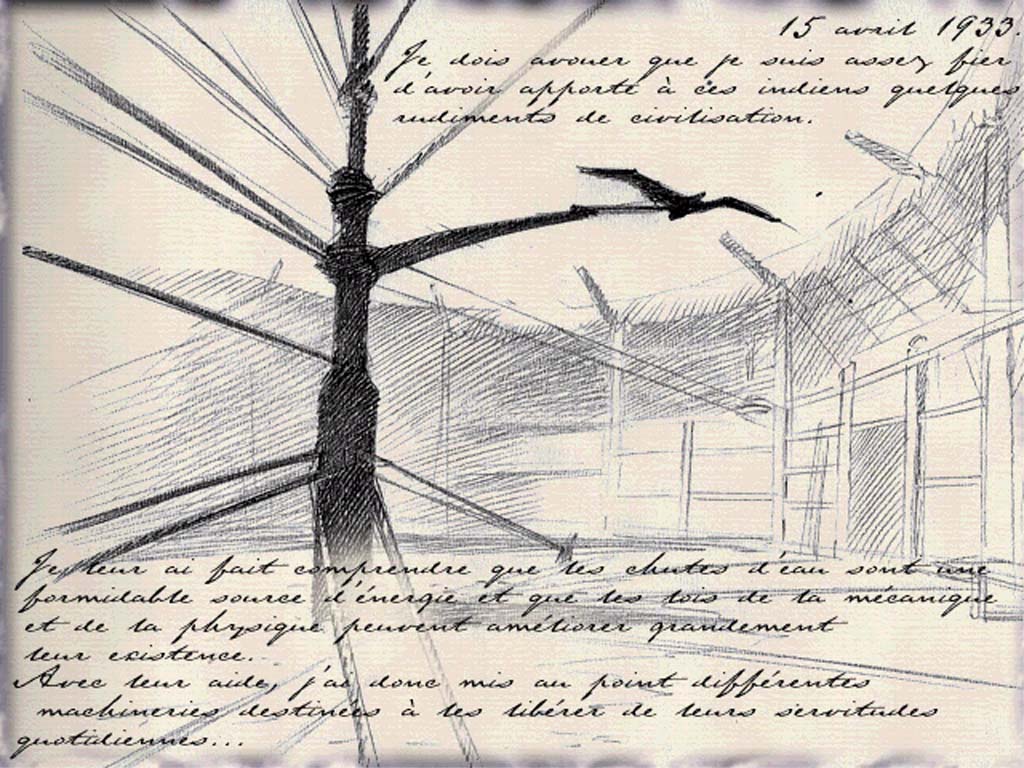 15 avril 1933.
Je dois avouer que je suis assez fier
d'avoir apporté à ces indiens quelques
rudiments de civilisation.
Je leur ai fait comprendre que les chutes d'eau sont une
formidable source d'énergie et que les lois de la mécanique
et de la physique peuvent améliorer grandement
leur existence.
Avec leur aide, j'ai donc mis au point différentes
machineries destinées à les libérer de leurs servitudes
quotidiennes...